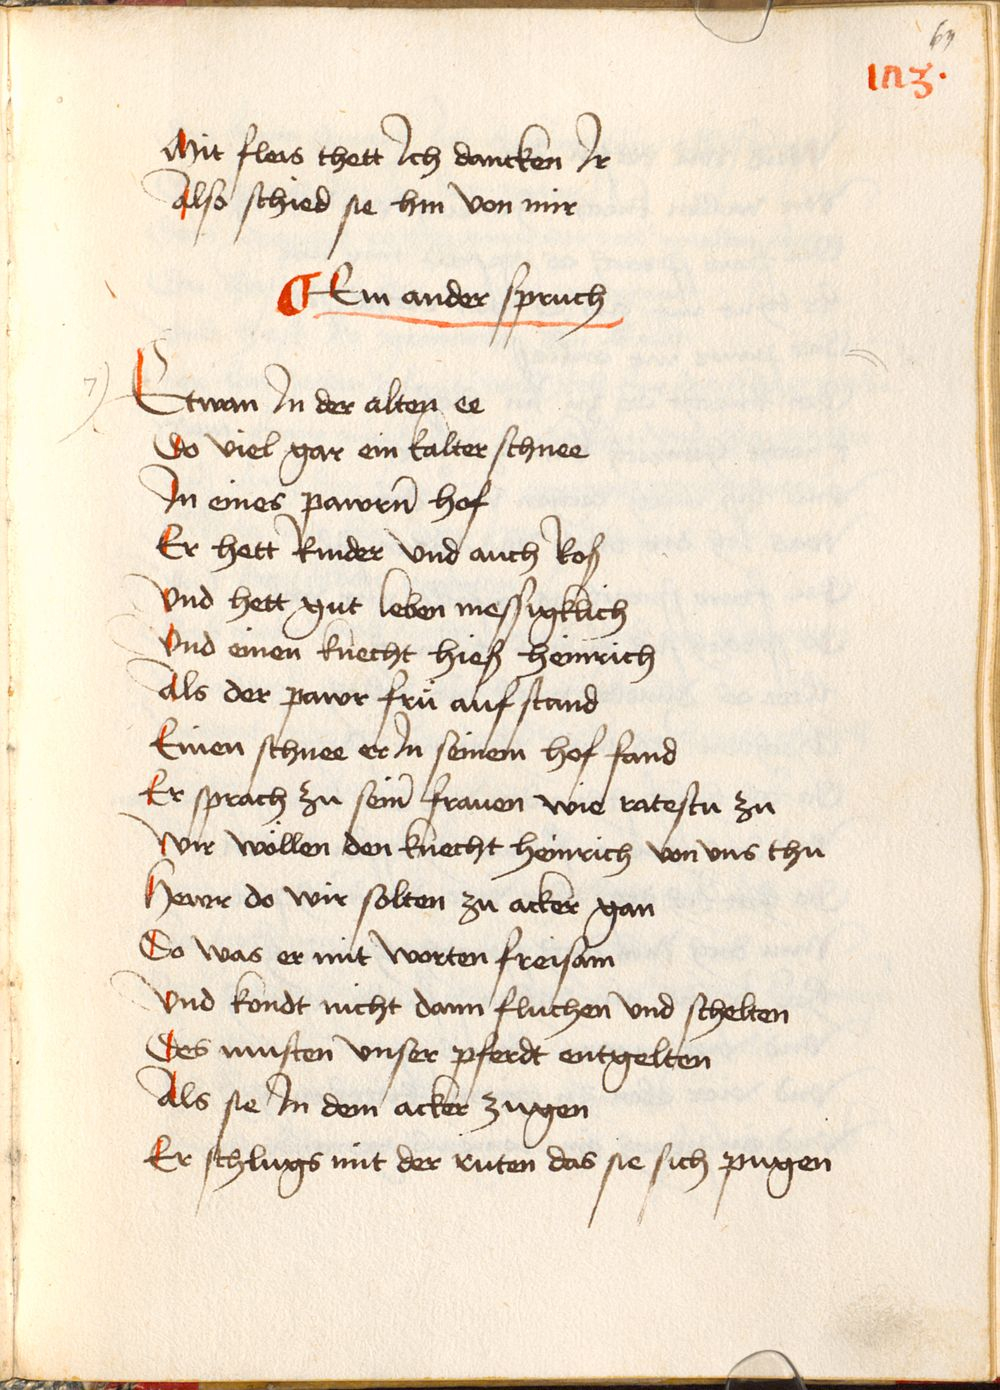 69
1Λ3.
Mit fleis thett Ich dancken Ir
Also schied sie hin von mir
Ein ander spruch
7)
Etwan In der alten ee
Do viel gar ein kalter schnee
In eines pawrn̄ hof
Er hett Rinder vnd auch Roß
Vnd hett gut leben messigklich
Vnd einen knecht hieß heinrich
Als der pawr frü auf stand
Einen schnee er In seinem hof fand
Er sprach zu sein̄ frauen wie ratestu zu
Wir wöllen den knecht heinrich von vns thu
Hewr do wir solten zu acker gan
Do was er mit worten freisam
Vnd kondt nicht dann fluchen vnd schelten
Des musten vnser pferdt entgelten
Als sie In dem acker zugen
Er schlugs mit der ruten das sie sich pugen